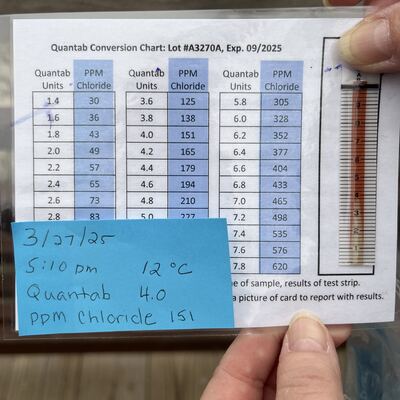 Quantab Conversion Chart: Lot #A3270A, Exp. 09/2025
Quantab Units PPM Chloride Quantab Units PPM Chloride Quantab Units PPM Chloride
1.4 30 3.6 125 5.8 305
1.6 36 3.8 138 6.0 328
1.8 43 4.0 151 6.2 352
2.0 49 4.2 165 6.4 377
2.2 57 4.4 179 6.6 404
2.4 65 4.6 194 6.8 433
2.6 73 4.8 210 7.0 465
2.8 83 5.0 227 7.2 498
7.4 535
7.6 576
7.8 620
3/27/25
5:10 pm 12 °C
Quantab 4.0
ppm Chloride 151
e of sample, results of test strip.
a picture of card to report with results.